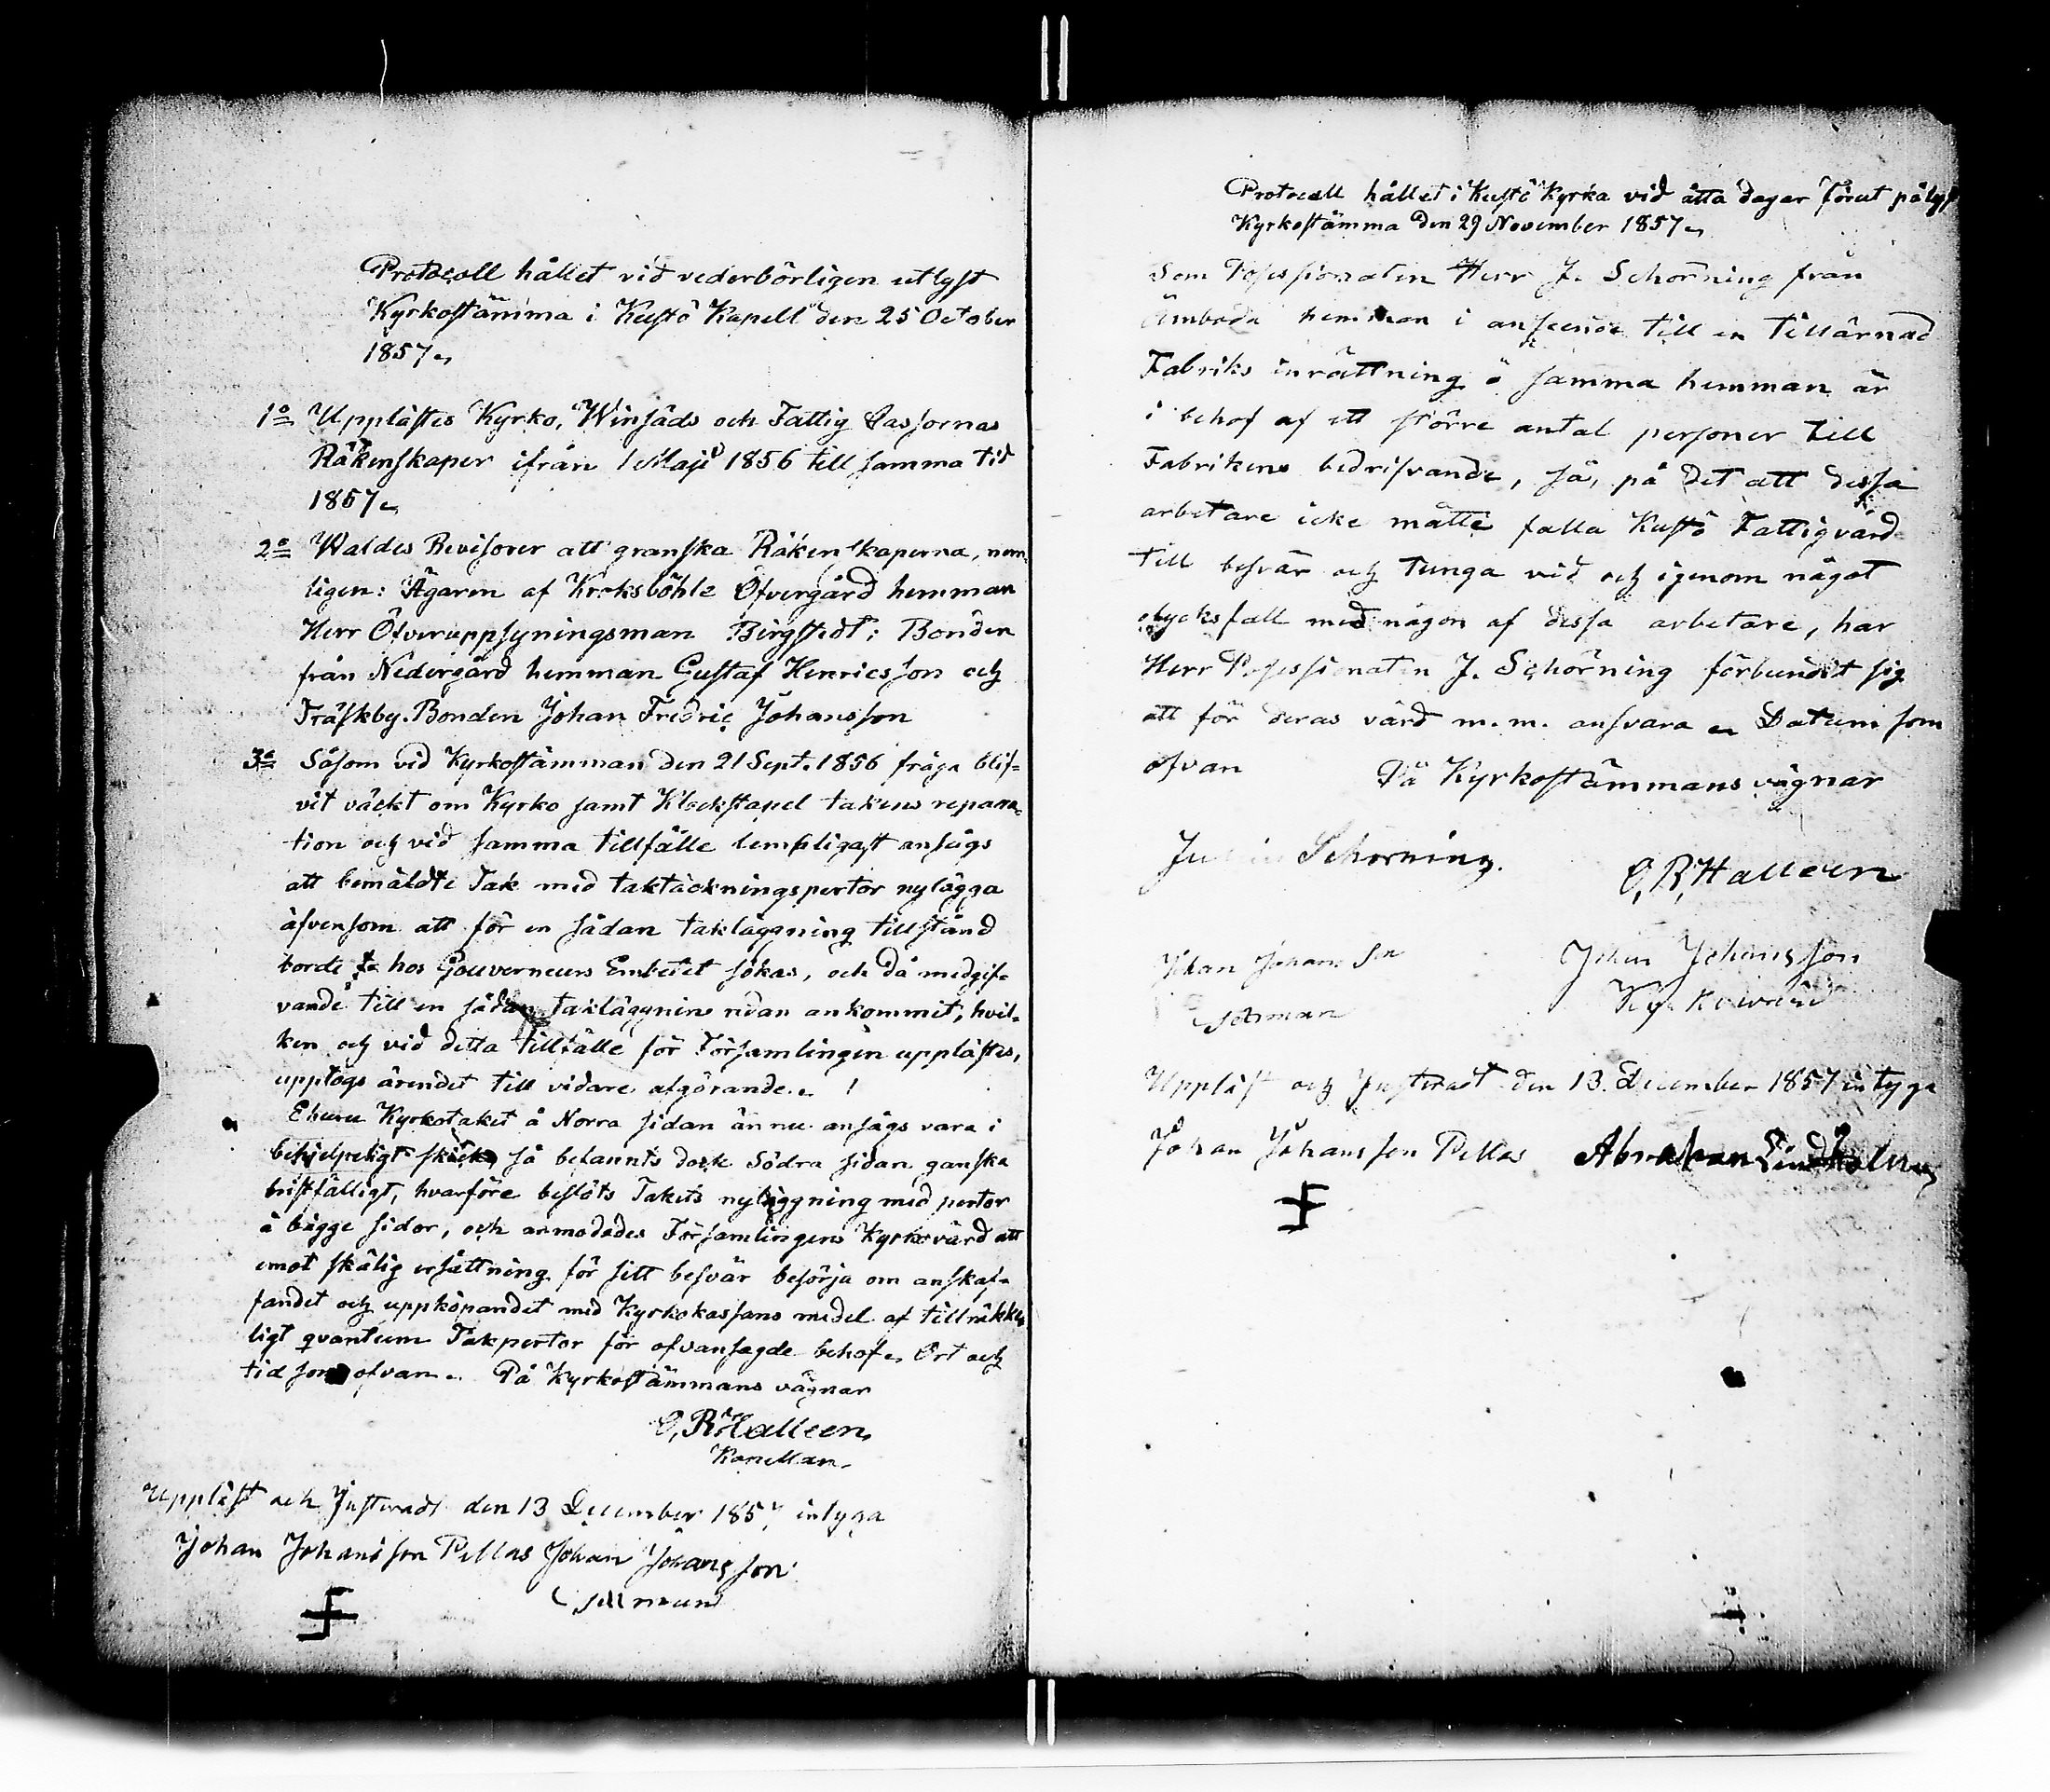 Protocoll hållet vid vederbörligen utlyst
Kyrkostämma i Kustö Kapell den 25 October
1857.
1o Upplästes Kyrko, Winsäds och Fattig Cassornas
Räkenskaper ifrån 1 Maji 1856 till samma tid
1857.
2o Waldes Revisorer att granska Räkenskaperna, nem-
ligen: Ägaren af Kroksböhle Öfvergård hemman
Herr Öfveruppsyningsman Bergstedt; Bonden
från Nedergård hemman Gustaf Henricsson och
Träskby Bonden Johan Fredric Johansson
3o Såsom vid Kyrkostämman den 21 Sept. 1856 fråga blif-
vit väckt om Kyrko samt Klockstapel takens repara-
tion och vid samma tillfälle lempligast ansågs
att bemäldte Tak med taktäckningspertor nylägga
äfvensom att för en sådan takläggning tillstånd
borde hos Gouverneurs Embetet sökas, och då medgif-
vande till en sådan takläggning ridan ankommit, hvil-
ken och vid detta tillfälle för Församlingen upplästes,
upptogs ärendet till vidare afgörande.
Ehuru Kyrkotaket å Norra sidan ännu ansågs vara i
behjelpeligt skick, så befannts dock Södra sidan ganska
bristfälligt, hvarföre beslöts Takets nyläggning med pertor
å bägge sidor, och anmodades Församlingens Kyrkovärd att
emot skälig ersättning för sitt besvär besörja om anskaf-
fandet och uppköpandet med Kyrkokassans medel af tillräkke-
ligt qvantum Takpertor för ofvansagde behof. Ort och
tid som ofvan. På Kyrkostämmans vägnar
O, R, Halleen
Kapellan.
Uppläst och Justeradt den 13 December 1857, intyga
Johan Johansson Pellas Johan Johansson
Protocoll hållet i Kustö Kyrka vid åtta dagar förut pålyst
Kyrkostämma den 29 November 1857.
Som Possessionaten Herr J. Schorning från
Ämboda hemman i anseende till en tillärnad
Fabriks inrättning å samma hemman är
i behof af ett större antal personer till
Fabrikens bedrifvande, så, på det att dessa
arbetare icke måtte falla Kustö Fattigvård
till besvär och tunga vid och igenom något
olycksfall med någon af dessa arbetare, har
Herr Possessionaten J. Schörning förbundit sig
att för deras vård m.m. ansvara. Datum som
ofvan På Kyrkostämmans vägnar
Schorning. O, R, Halleen
Johan Johansson Johan Johansson
Kyrkovärd
Uppläst och Justeradt den 13 December 1857 intyga
Johan Johansson Pellas Abraham Lindholm